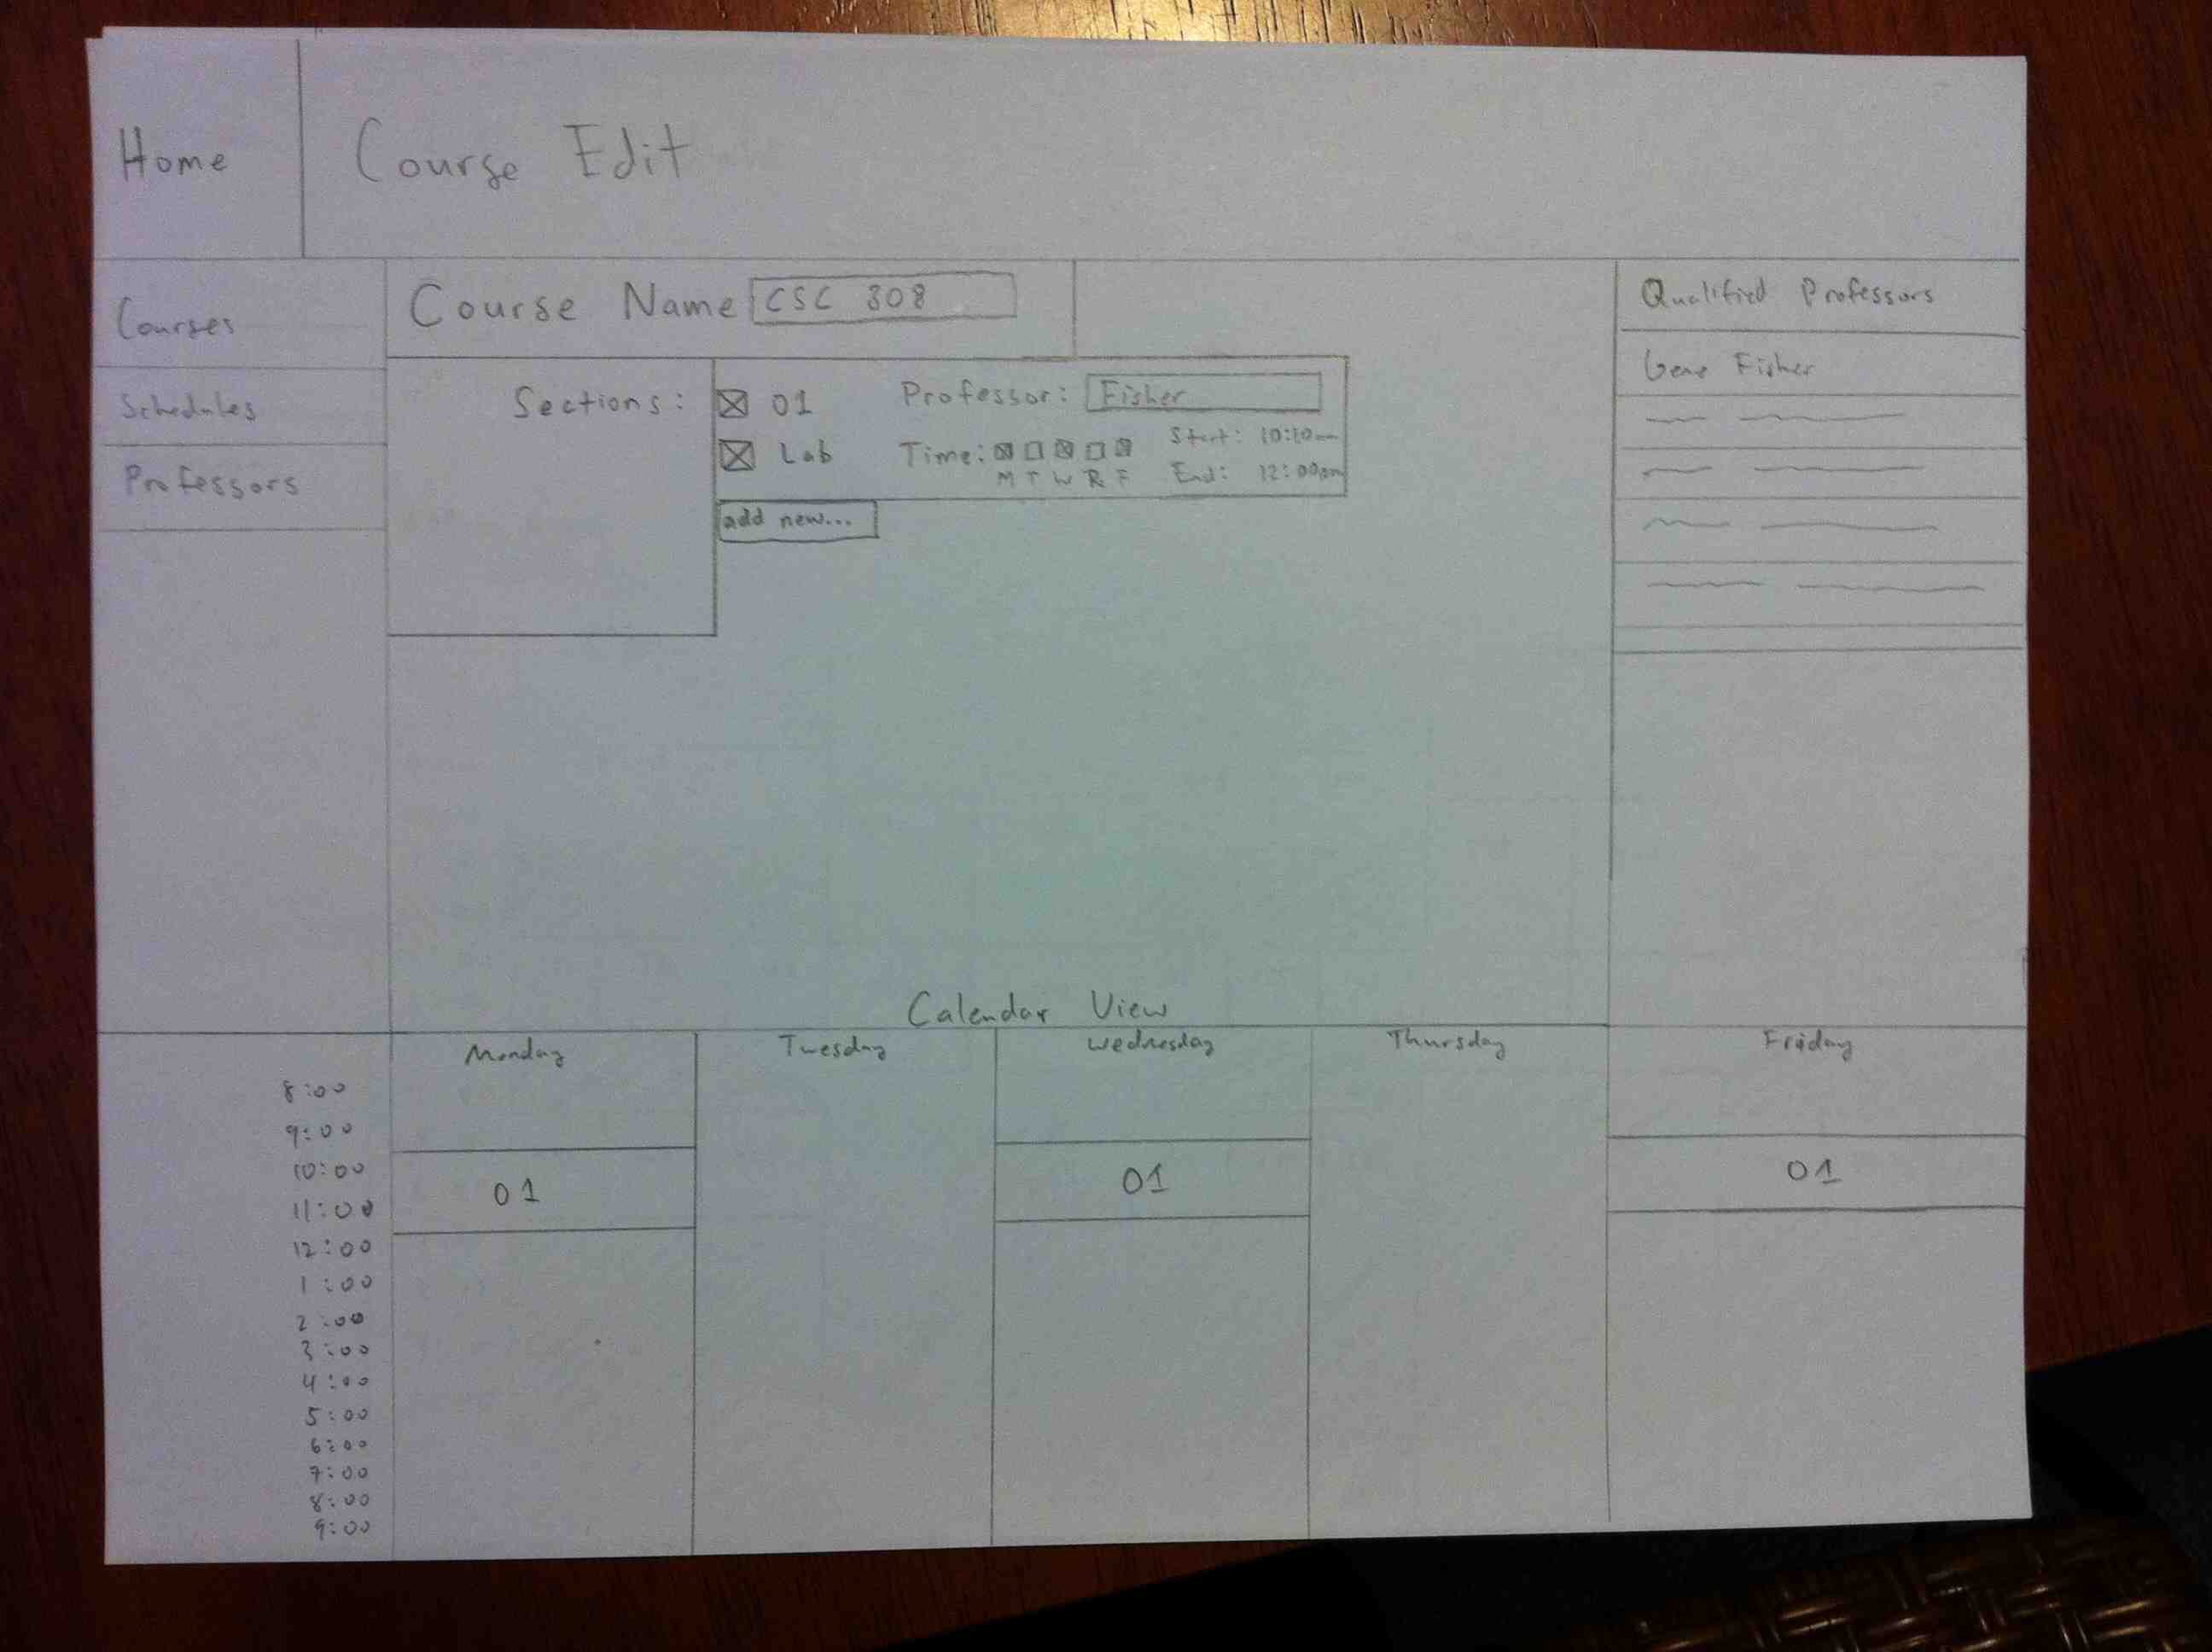 Home
Course Edit
Courses
Schedules
Professors
Course Name CSC 308
Sections:
01
Lab
Professor: Fisher
Time:
M T W R F
Start: 10:10am
End: 12:00pm
add new...
Qualified Professors
Gene Fisher
Calendar View
Monday Tuesday Wednesday Thursday Friday
8:00
9:00
10:00
11:00
01 01 01
12:00
1:00
2:00
3:00
4:00
5:00
6:00
7:00
8:00
9:00